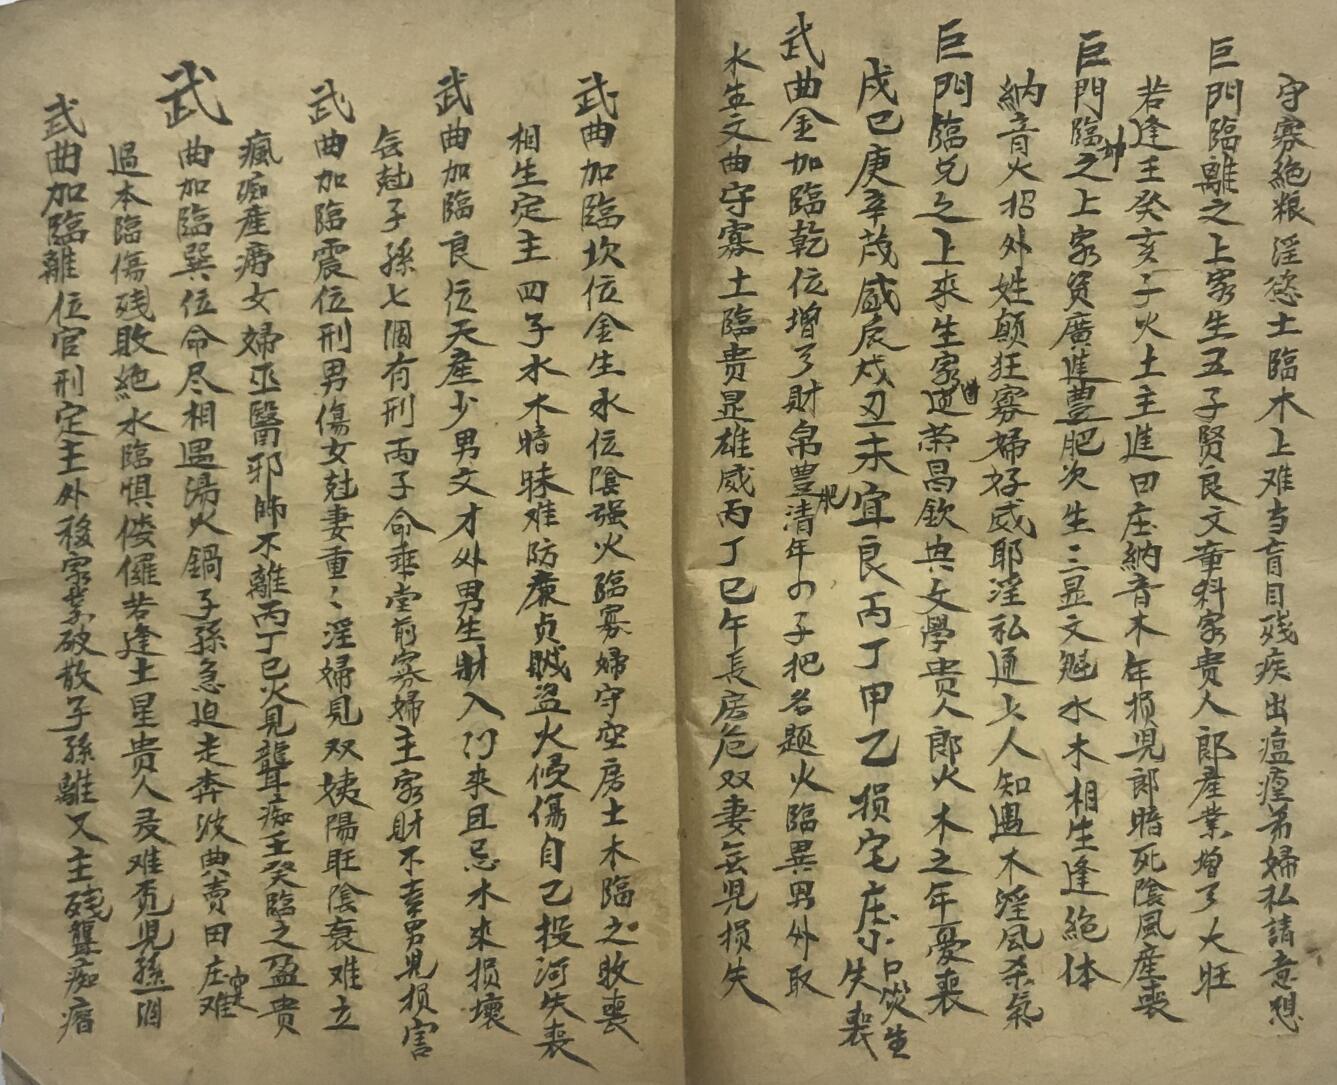 守寡絶粮淫慾土臨木上难当盲目残疾出瘟瘟弟婦私請意想
巨門臨離之上家生五子賢良文章科家贵人郎產業增了大旺
若逢壬癸亥子火土主進田庄納音木年損児郎暗死陰風產喪
巨門臨坤之上家贫廣進豊肥次生三显文魁水木相生逢絶体
納音火招外姓颠狂寡婦好威耶淫私通上人知遇木淫風杀氣
巨門臨兑之上來生家迪荣昌欽典文學贵人郎火木之年憂喪
戊己庚辛茂盛辰戌丑未宜良丙丁甲乙損宅庄小口災失喪
武曲金加臨乾位增了財帛豊肥清年の子把名題火臨異男外取
水生文曲守寡土臨贵显雄威丙丁巳午長房危双妻無児損失
武曲加臨坎位金生永位陰强火臨寡婦守空房土木臨之敗喪
相生定主四子水木暗昧难防廉贞賊盗火侵傷自己投河失喪
武曲加臨艮位天產少男文才外男生財入门來且忌水來損壞
無尅子孫七個有刑丙子命乖堂前寡婦主家財不幸男児損害
武曲加臨震位刑男傷女尅妻重々淫婦見双姨陽旺陰衰难立
瘋痴產痨女婦巫醫邪師不離丙丁巳火見聾痴壬癸臨之盈贵
武曲加臨巽位命尽相遇湯火鍋子孫急迫走奔波典賣田庄难
過本臨傷残敗絶水臨惧倭儸若逢土星贵人灵难覓児孫一個
武曲加臨離位官刑定主外移家業破散子孫離又主残聾痴瘖